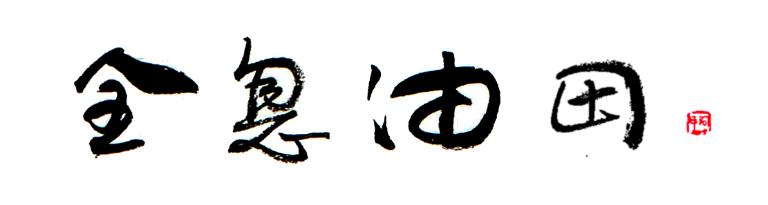 全息油田